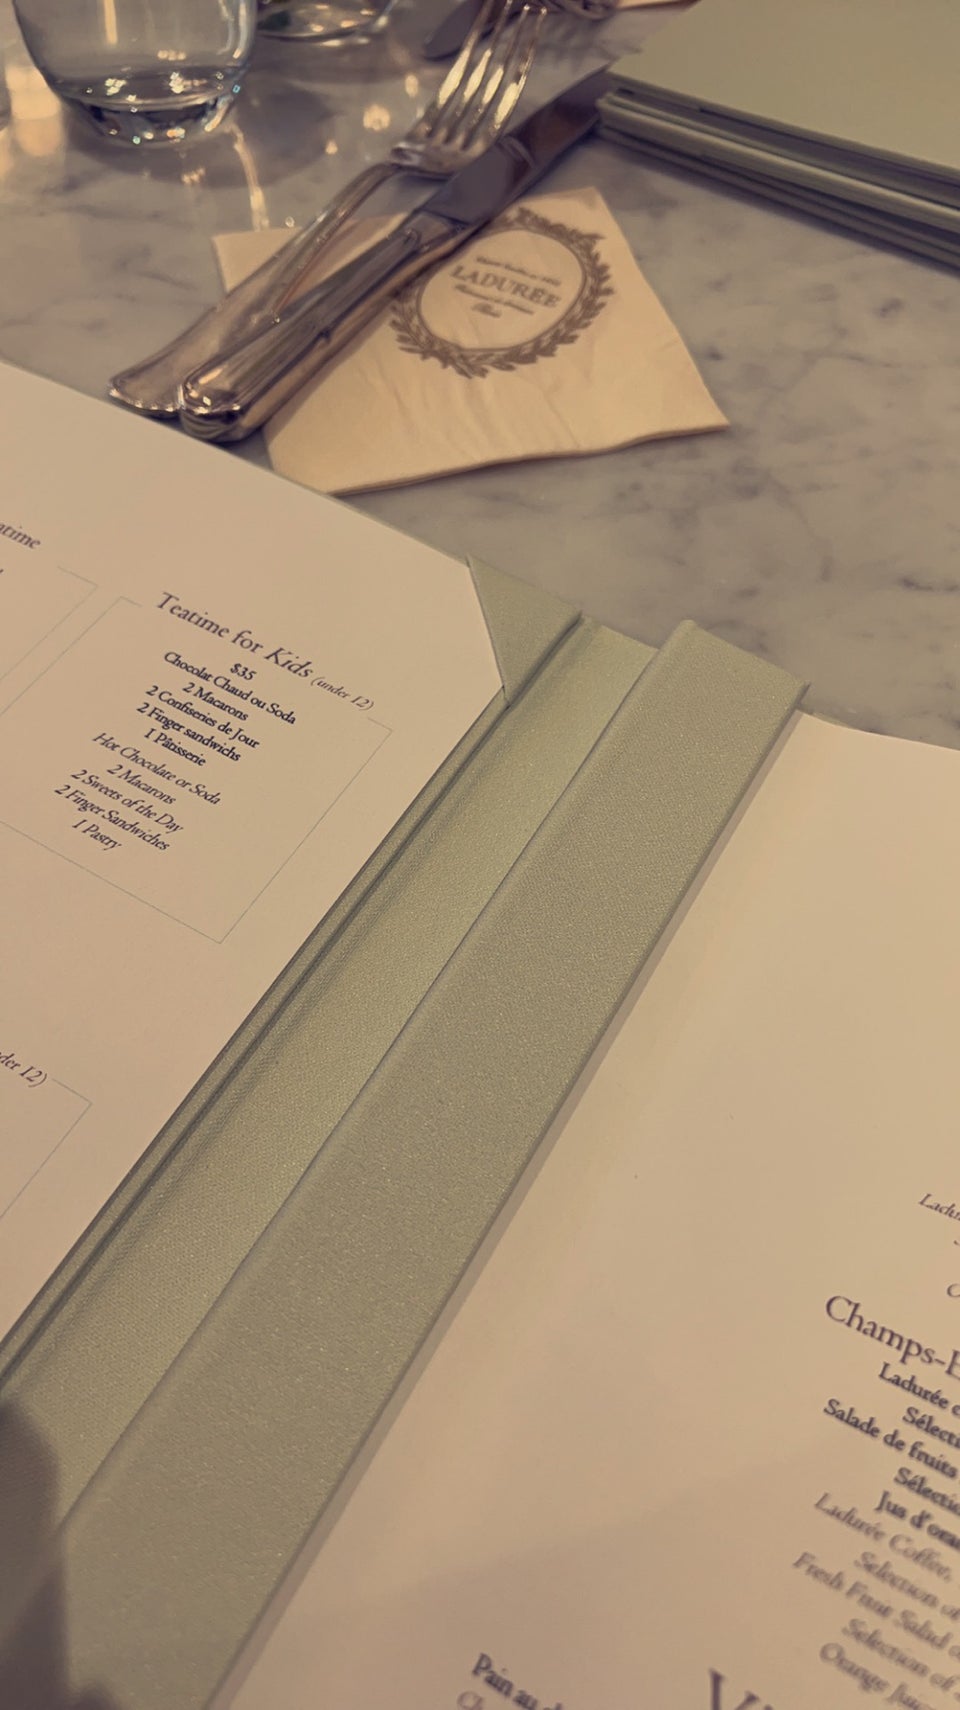 LADURÉE
Paris
Teatime for Kids (under 12)
$35
Chocolat Chaud ou Soda
2 Macarons
2 Confiseries de Jour
2 Finger sandwichs
1 Pâtisserie
Hot Chocolate or Soda
2 Macarons
2 Sweets of the Day
2 Finger Sandwiches
1 Pastry
12)
Champs-E
Ladurée
Sélecti
Salade de fruits
Sélectio
Jus d'ora
Ladurée Coffee,
Selection of
Fresh Fruit Salad
Selection of
Orange Juice
Pain au